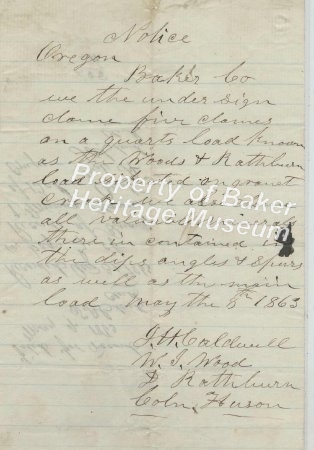 Notice
Oregon
Baker Co
we the under sign
clame five clames
on a quarts load known
as the Woods & Rathburn
load
all
there in contained in
the dips angles & Spurs
as well as the main
load May the 8th 1863
J. H. Caldwell
W. J. Wood
D Rathburn
Coln. Huson
Property of Baker
Heritage Museum